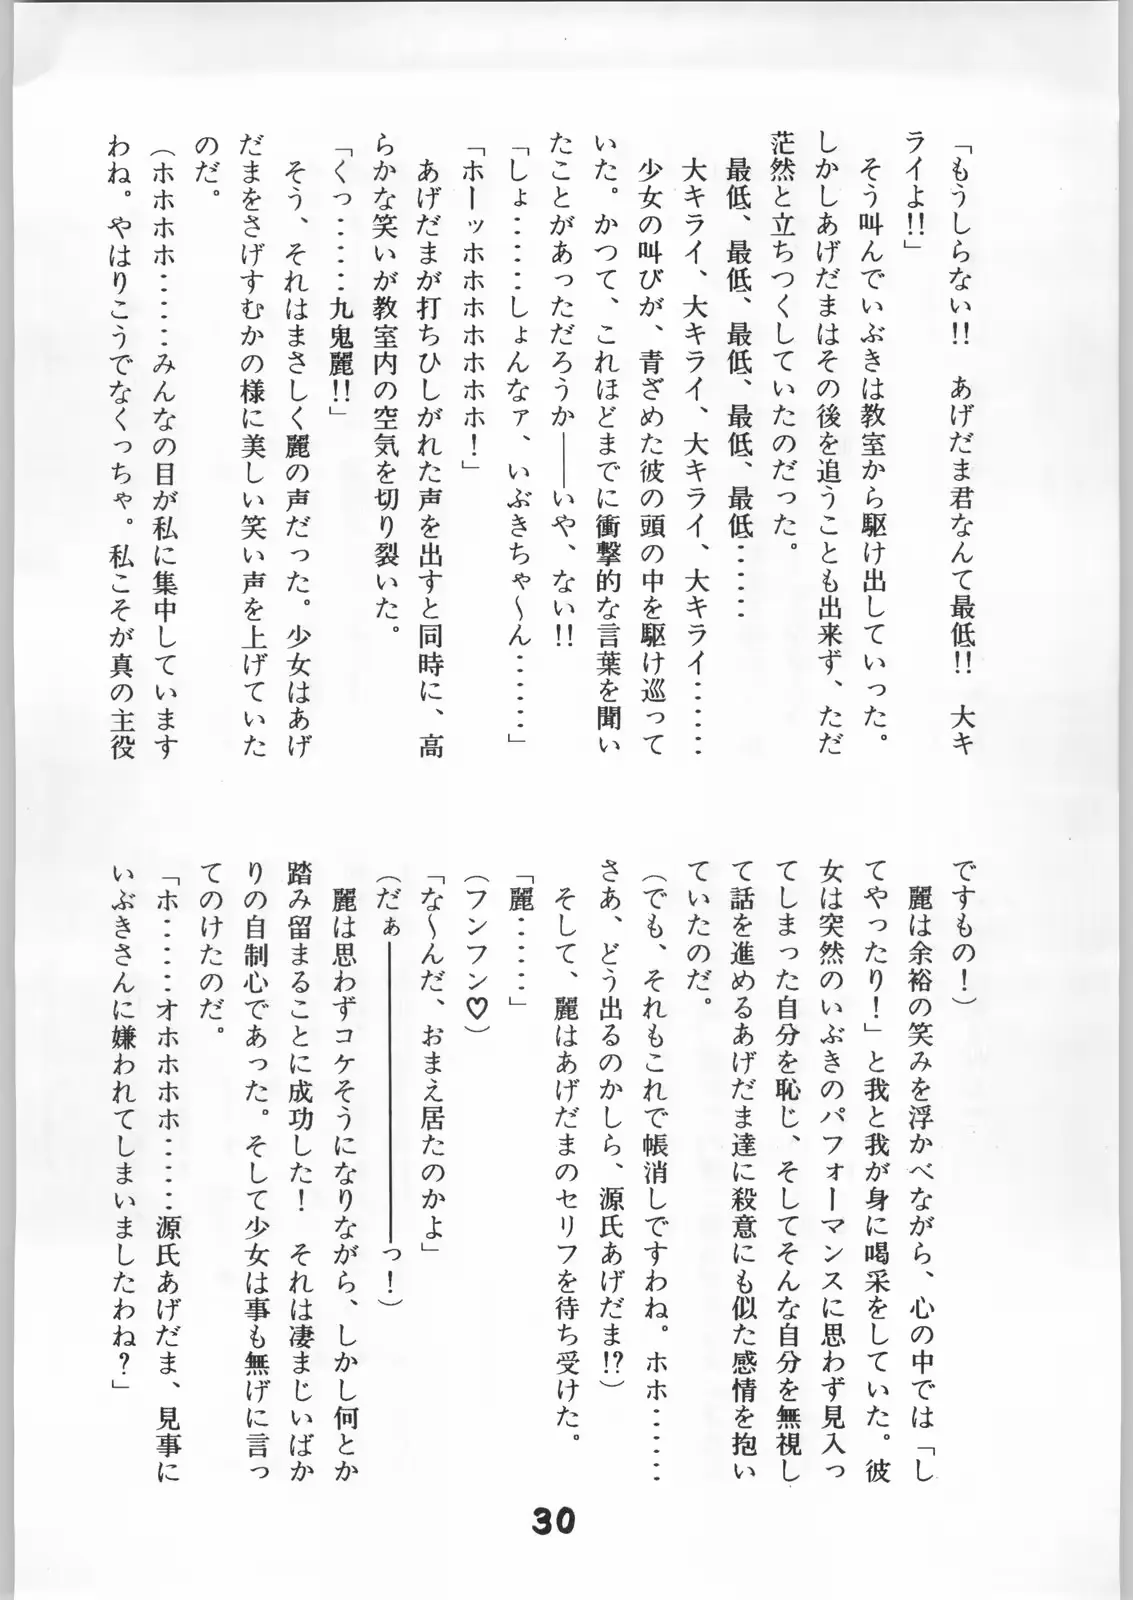 「もうしらない!!　あげだま君なんて最低!!　大キ
ライよ!!」
　そう叫んでいぶきは教室から駆け出していった。
しかしあげだまはその後を追うことも出来ず、ただ
茫然と立ちつくしていたのだった。
　最低、最低、最低、最低、最低‥‥‥
　大キライ、大キライ、大キライ、大キライ‥‥‥
　少女の叫びが、青ざめた彼の頭の中を駆け巡って
いた。かつて、これほどまでに衝撃的な言葉を聞い
たことがあっただろうか――いや、ない!!
「しょ‥‥‥しょんなァ、いぶきちゃ～ん‥‥‥」
「ホーッホホホホホホホ！」
　あげだまが打ちひしがれた声を出すと同時に、高
らかな笑いが教室内の空気を切り裂いた。
「くっ‥‥‥九鬼麗!!」
　そう、それはまさしく麗の声だった。少女はあげ
だまをさげすむかの様に美しい笑い声を上げていた
のだ。
（ホホホホ‥‥‥みんなの目が私に集中しています
わね。やはりこうでなくっちゃ。私こそが真の主役
ですもの！）
　麗は余裕の笑みを浮かべながら、心の中では「し
てやったり！」と我と我が身に喝采をしていた。彼
女は突然のいぶきのパフォーマンスに思わず見入っ
てしまった自分を恥じ、そしてそんな自分を無視し
て話を進めるあげだま達に殺意にも似た感情を抱い
ていたのだ。
（でも、それもこれで帳消しですわね。ホホ‥‥‥
さあ、どう出るのかしら、源氏あげだま!?）
　そして、麗はあげだまのセリフを待ち受けた。
「麗‥‥‥」
（フンフン♡）
「な～んだ、おまえ居たのかよ」
（だぁ――――――――っ！）
　麗は思わずコケそうになりながら、しかし何とか
踏み留まることに成功した！　それは凄まじいばか
りの自制心であった。そして少女は事も無げに言っ
てのけたのだ。
「ホ‥‥‥オホホホホ‥‥‥源氏あげだま、見事に
いぶきさんに嫌われてしまいましたわね？」
30